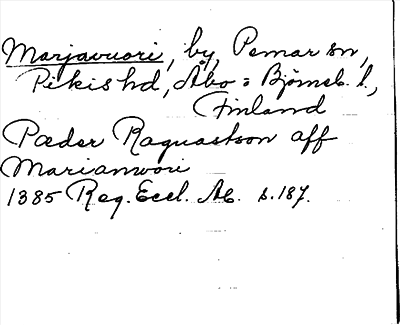 Marjavuori, by, Pemar sn,
Pikis hd, Åbo = Björneb. l.,
Finland
Pæder Raguastson aff
Marianwori
1385 Reg. Eccl. Ab. s. 187.